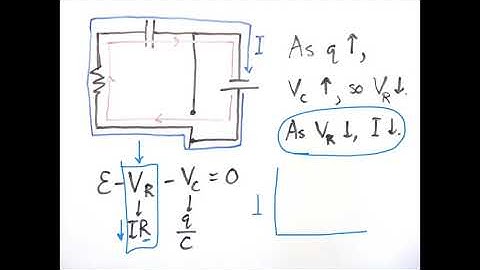 I
As q ↑,
V_C ↑, so V_R ↓.
As V_R ↓, I ↓.
ℰ - V_R - V_C = 0
↓ ↓
↓ IR q/C
I